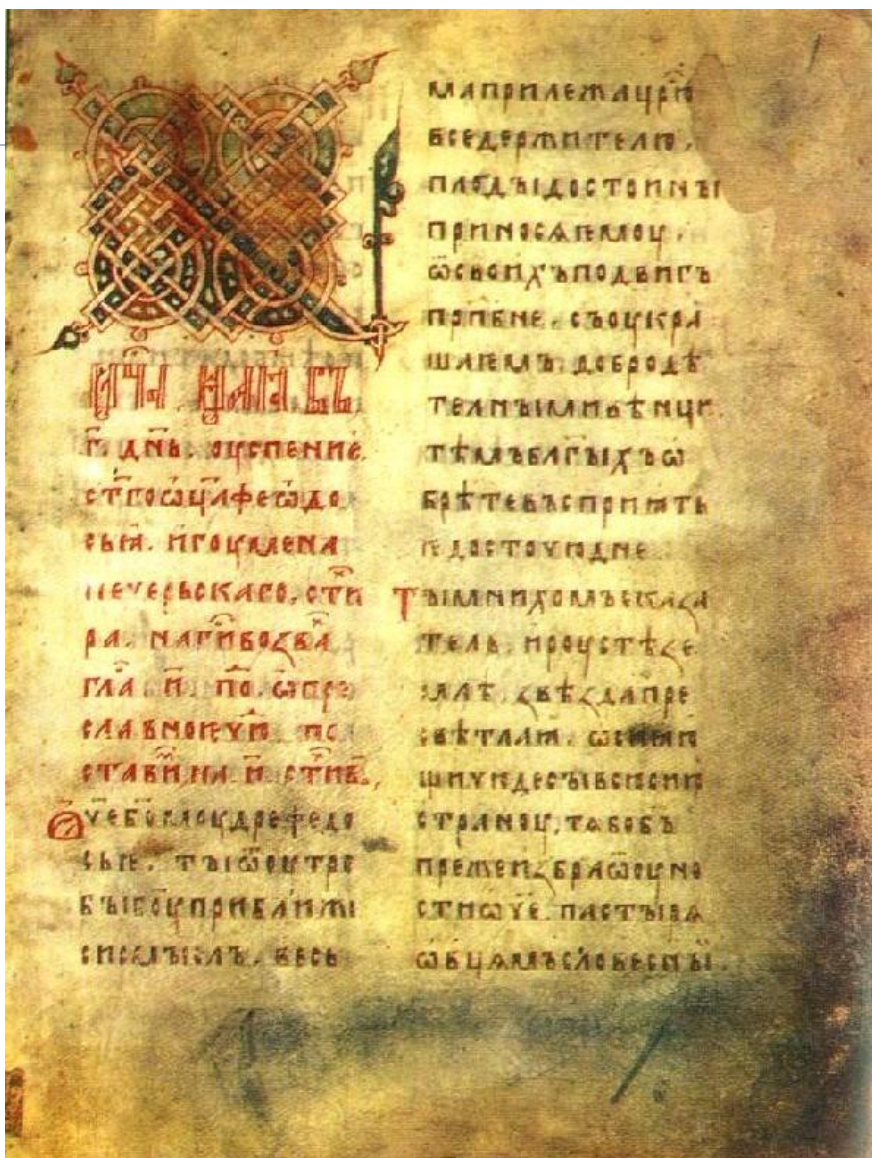 м҃ца маіа въ
г҃ днь оуспение
ст҃го ѡц҃а феѡдо
сьꙗ. игоумена
печерьскаго. сти
ра. на г҃и возва
гла и҃ по. ѡ пре
славное чю по
стави на и҃ стив.
Ѡч҃е бог҃моудре федо
сье. ты ѿ оутро
бы боу приближи
сисмыслъ. весь
ма прилежа цр҃ю
вседержителю.
плоды достоины
приносѧ ѥмоу.
ѿ своихъ подвигъ
прп҃бне. съоукра
шаѥмъ. добродѣ
телными вѣнци.
тѣмъ благыхъ ѡ
брѣте въспри꙯ꙗть
и достоуюдне
Ты мнихомъ сказа
тель. и роустѣ зе
млѣ. звѣзда пре
свѣтлаꙗ. ѡсиꙗю
щи чюдесы вси сию
страноу. тѧ бо бъ
преже избра ѿ оуно
сти ѿч҃е. пастырѧ
ѡвцѧмъ словесны.